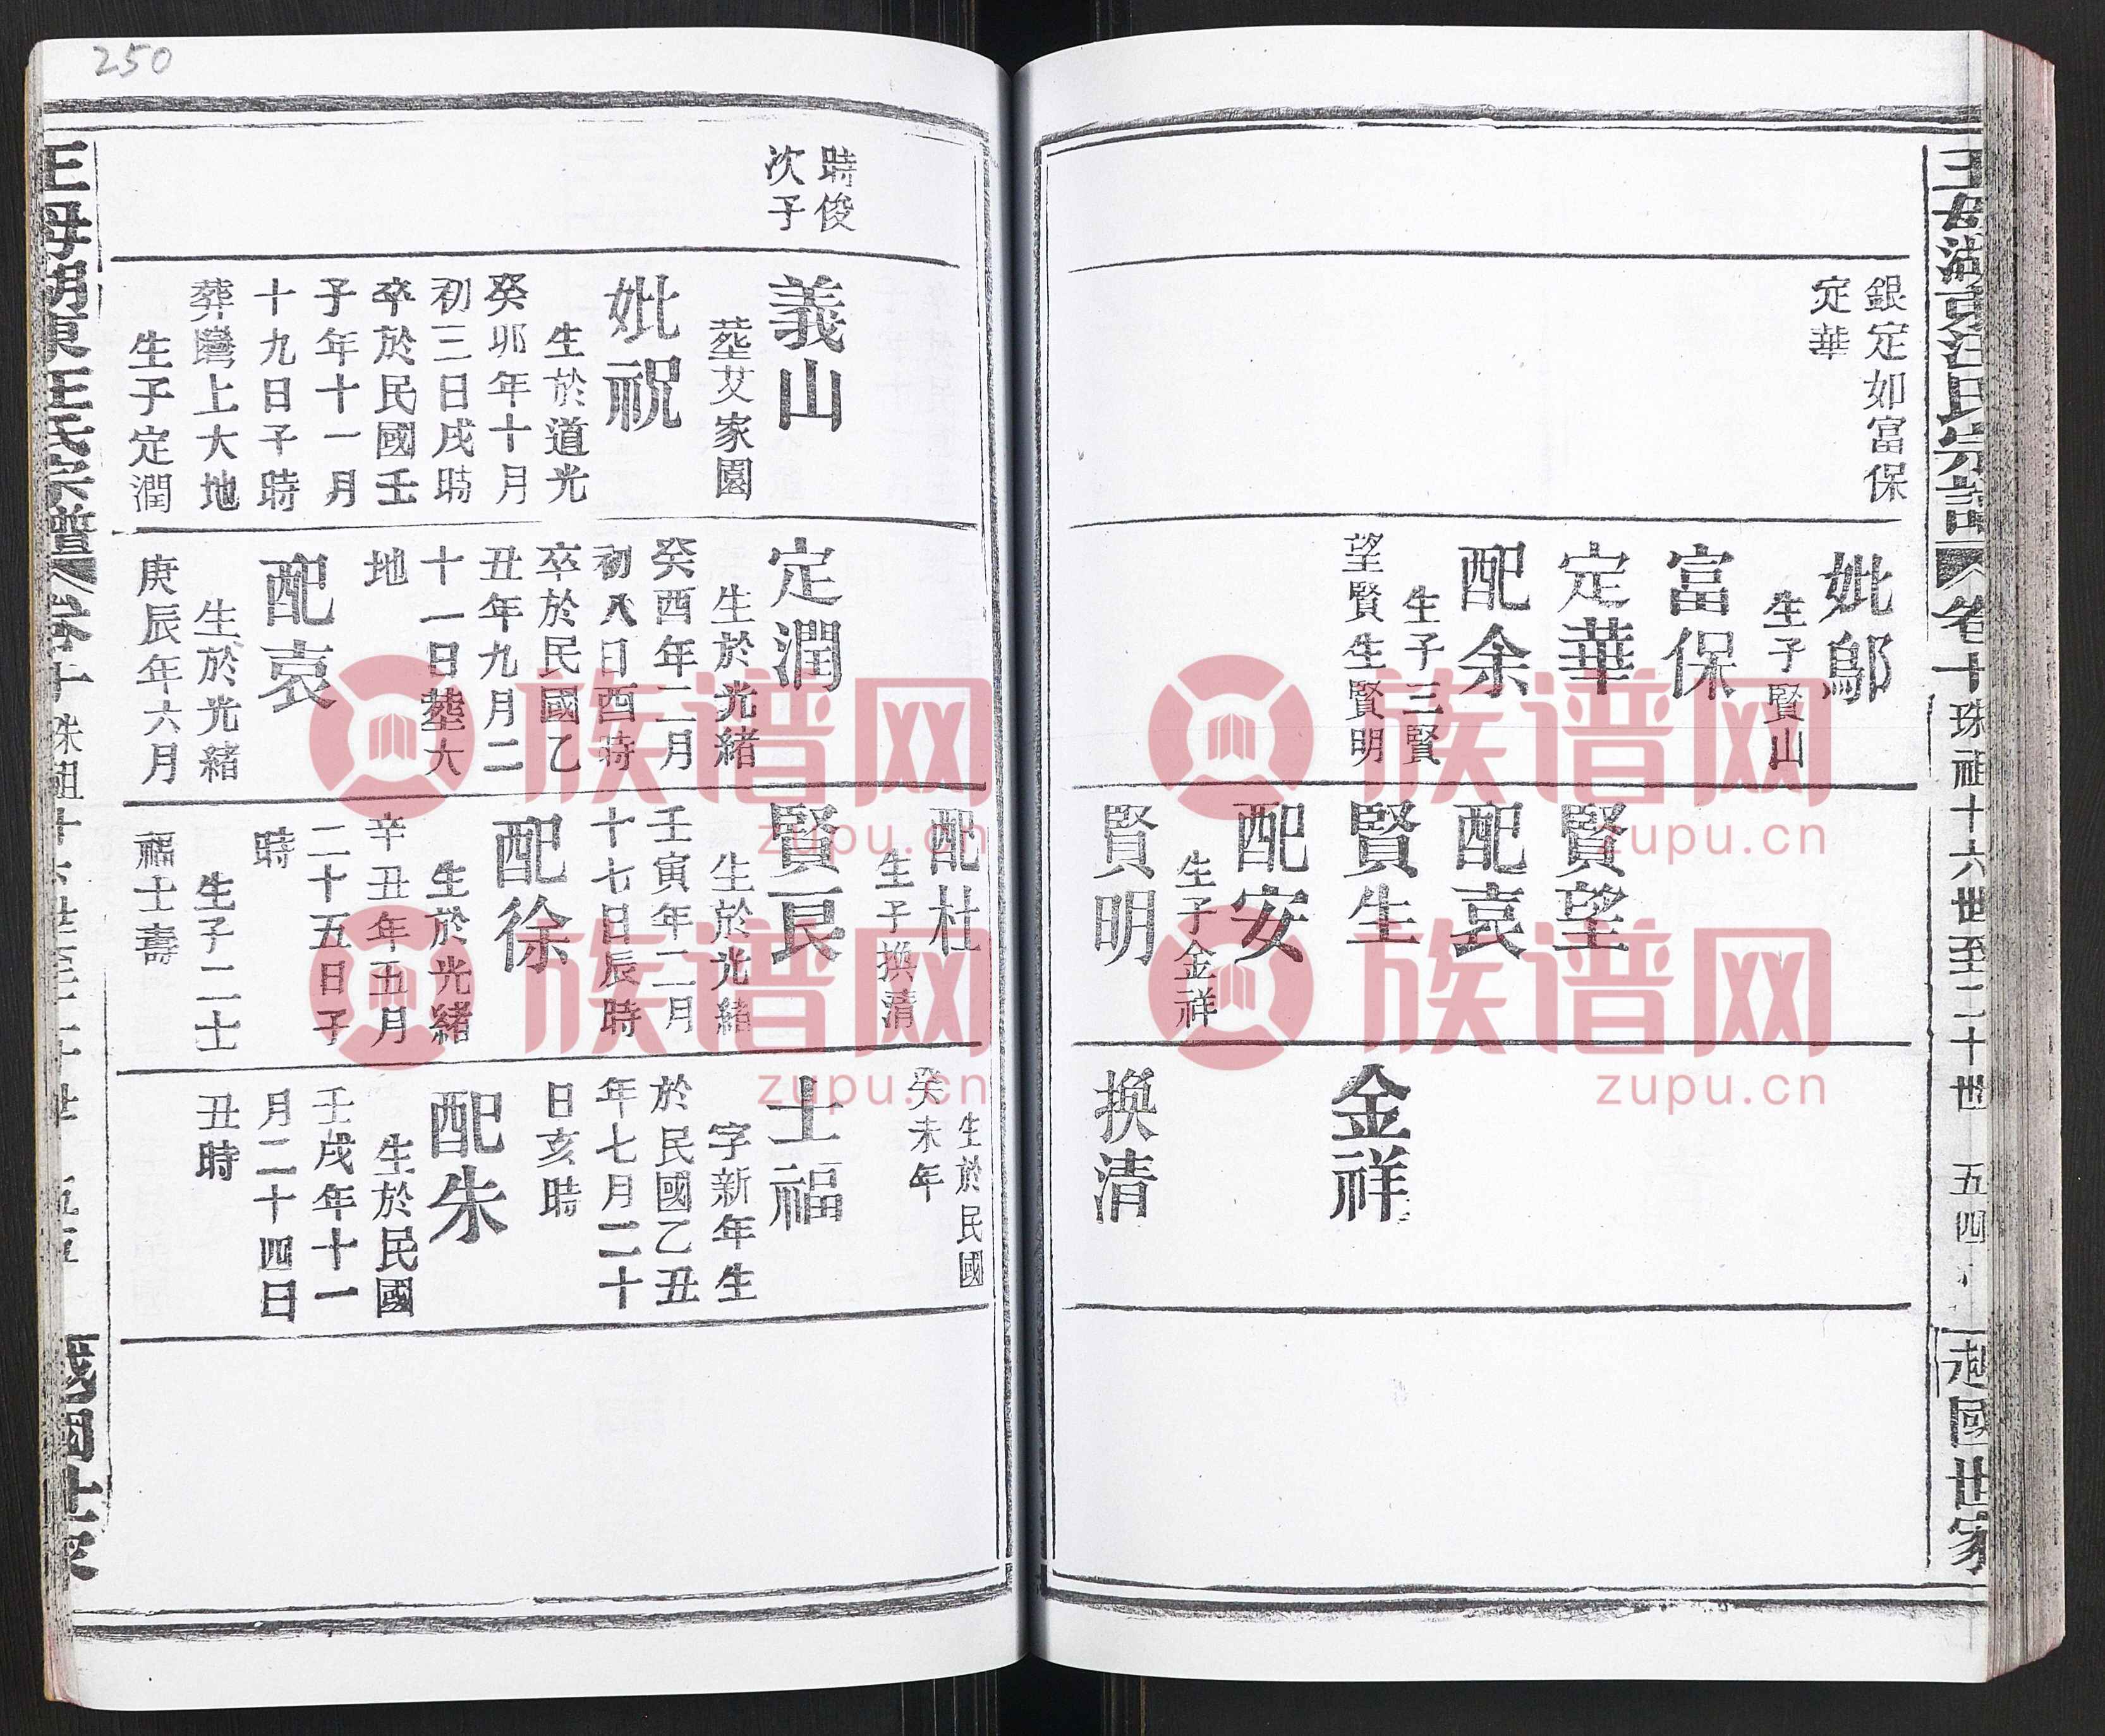 王母湖東汪氏宗譜 卷十 珠祖十六世至二十世 五四 越國世家
銀定如富保
定華
妣鄔
生子賢山
富保
定華
配余
生子三賢
望賢生賢明
賢望
配袁
賢生
配安
生子金祥
賢明
金祥
換清
250
時俊
次子
義山
塟艾家園
妣祝
生於道光
癸卯年十月
初三日戌時
卒於民國壬
子年十一月
十九日子時
葬灣上大地
生子定潤
定潤
生於光緒
癸酉年二月
初八日酉時
卒於民國乙
丑年九月二
十一日塟大
地
配袁
生於光緒
庚辰年六月
配杜
生子換清
賢良
生於光緒
壬寅年二月
十七日辰時
配徐
生於光緒
辛丑年五月
二十五日子
時
生子二士
福士壽
生於民國
癸未年
士福
字新年生
於民國乙丑
年七月二十
日亥時
配朱
生於民國
壬戌年十一
月二十四日
丑時
王母湖東汪氏宗譜 卷十 珠祖十六世至二十世 五五 越國世家
族谱网
zupu.cn
族谱网
zupu.cn
族谱网
zupu.cn
族谱网
zupu.cn